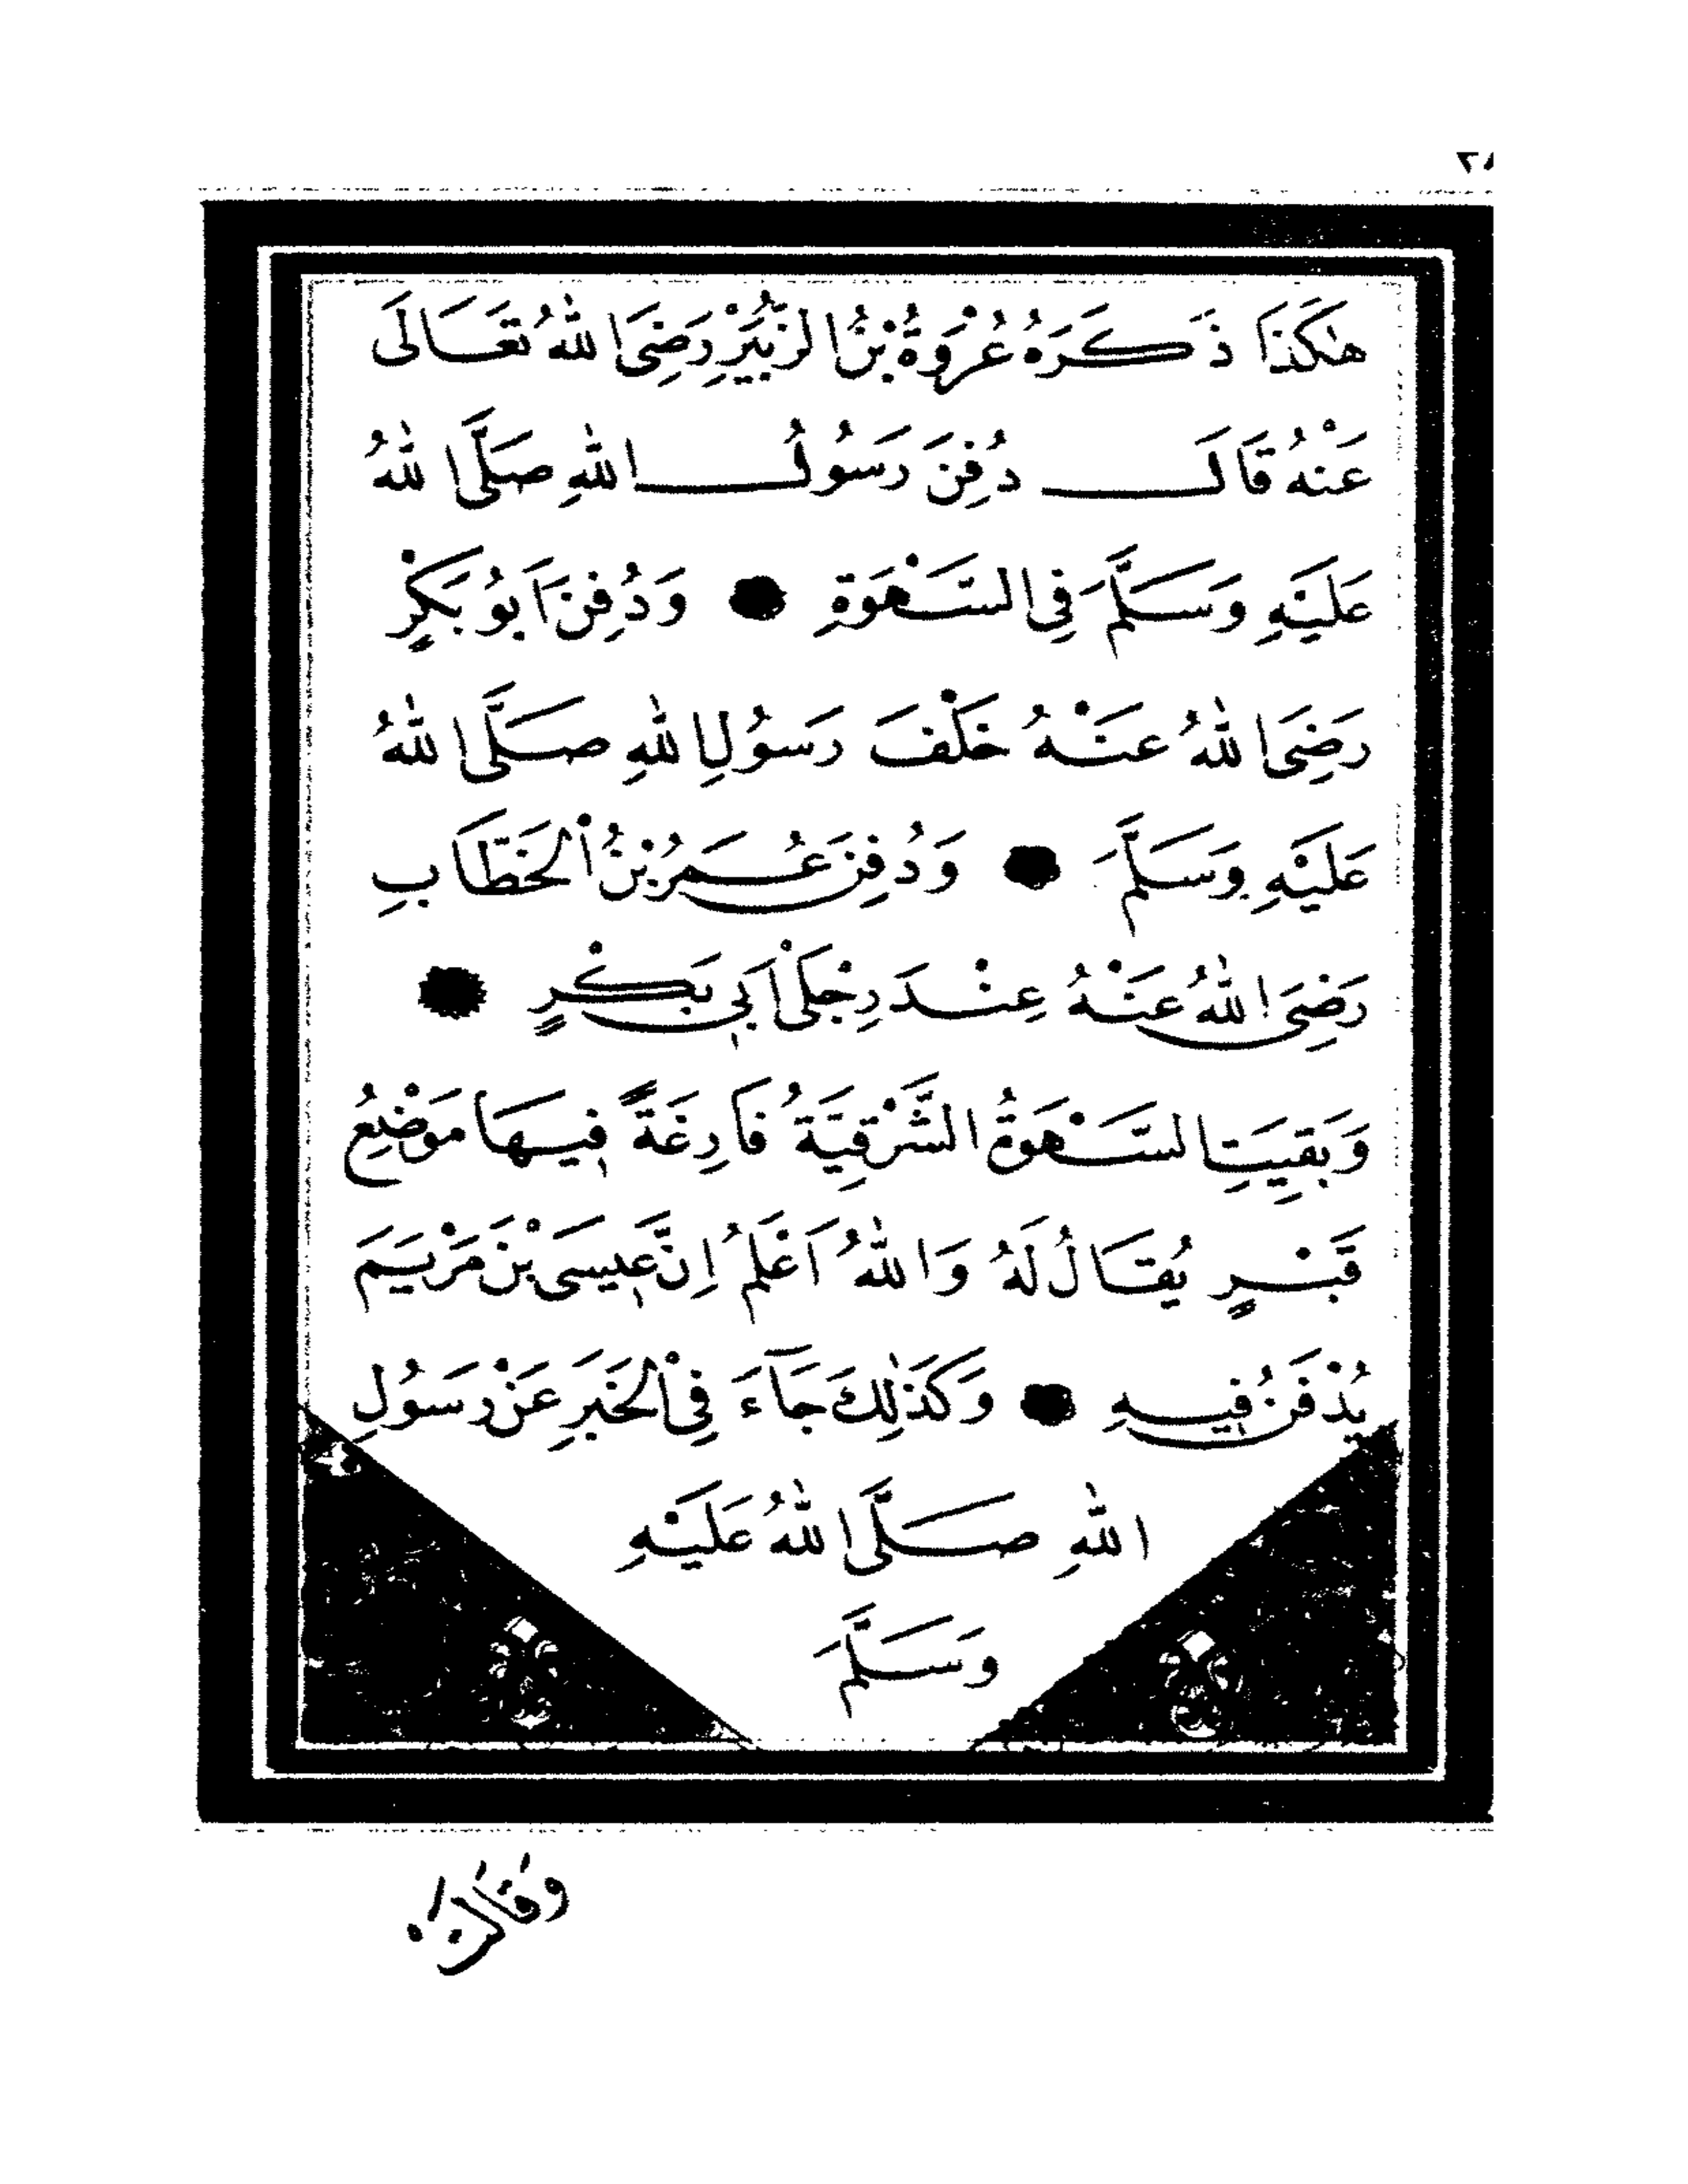 هٰكَذَا ذَكَرَهُ عُرْوَةُ بْنُ الزُّبَيْرِ رَضِيَ اللهُ تَعَالَى
عَنْهُ قَالَ دُفِنَ رَسُولُ اللهِ صَلَّى اللهُ
عَلَيْهِ وَسَلَّمَ فِي السَّهْوَةِ ● وَدُفِنَ اَبُو بَكْرٍ
رَضِيَ اللهُ عَنْهُ خَلْفَ رَسُولِ اللهِ صَلَّى اللهُ
عَلَيْهِ وَسَلَّمَ ● وَدُفِنَ عُمَرُ بْنُ الْخَطَّابِ
رَضِيَ اللهُ عَنْهُ عِنْدَ رِجْلَيْ اَبِي بَكْرٍ ●
وَبَقِيَتِ السَّهْوَةُ الشَّرْقِيَّةُ فَارِغَةً فِيهَا مَوْضِعُ
قَبْرٍ يُقَالُ لَهُ وَاللهُ اَعْلَمُ اِنَّ عِيسَى بْنَ مَرْيَمَ
يُدْفَنُ فِيهِ ● وَكَذٰلِكَ جَآءَ فِي الْخَبَرِ عَنْ رَسُولِ
اللهِ صَلَّى اللهُ عَلَيْهِ
وَسَلَّمَ
وقالت